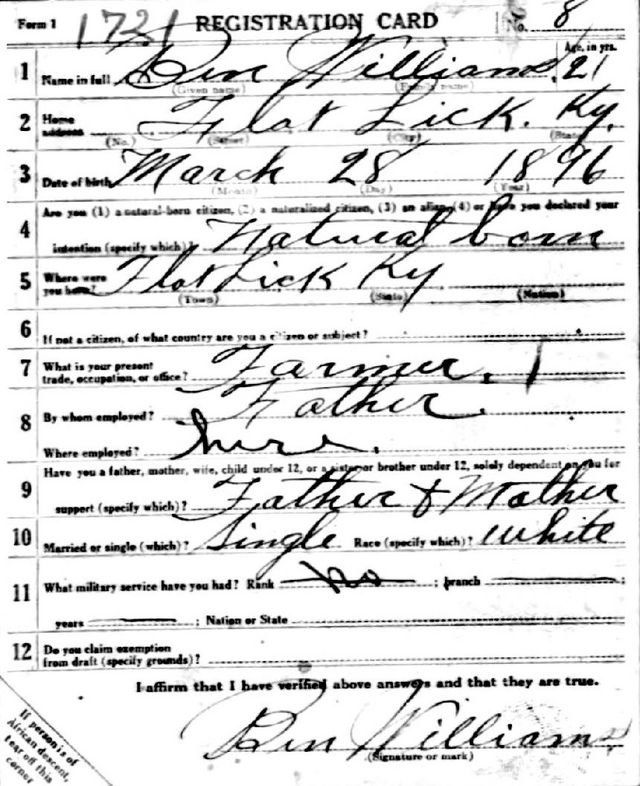 Form 1 1731 REGISTRATION CARD No. 8
1 Name in full Ben Williams. Age, in yrs. 21
(Given name) (Family name)
2 Home address Flat Lick. Ky.
(No.) (Street) (City) (State)
3 Date of birth March 28 1896
(Month) (Day) (Year)
4 Are you (1) a natural-born citizen, (2) a naturalized citizen, (3) an alien, (4) or have you declared your
intention (specify which)? Natural born
5 Where were you born? Flat Lick Ky
(Town) (State) (Nation)
6 If not a citizen, of what country are you a citizen or subject?
7 What is your present trade, occupation, or office? Farmer. 1
8 By whom employed? Father.
Where employed? here.
9 Have you a father, mother, wife, child under 12, or a sister or brother under 12, solely dependent on you for
support (specify which)? Father & Mother
10 Married or single (which)? Single Race (specify which)? White
11 What military service have you had? Rank no ; branch
years ; Nation or State
12 Do you claim exemption
from draft (specify grounds)?
I affirm that I have verified above answers and that they are true.
Ben Williams
(Signature or mark)
If person is of
African descent,
tear off this
corner